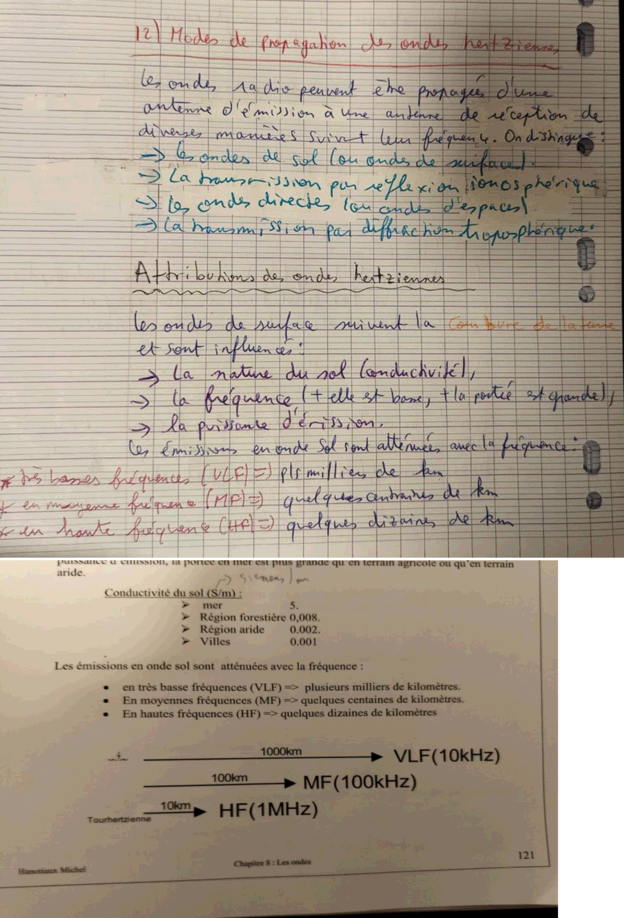 12) Modes de propagation des ondes hertziennes
Les ondes radio peuvent être propagées d'une
antenne d'émission à une antenne de réception de
diverses manières suivant leur fréquence. On distingue :
→ les ondes de sol (ou ondes de surface).
→ La transmission par réflexion ionosphérique
→ Les ondes directes (ou ondes d'espaces)
→ La transmission par diffraction troposphérique.
Attributions des ondes hertziennes
Les ondes de surface suivent la courbure de la terre
et sont influencés :
→ La nature du sol (conductivité),
→ la fréquence (+ elle est basse, + la portée est grande),
→ la puissance d'émission.
Les émissions en onde sol sont atténuées avec la fréquence :
* très basses fréquences (VLF) => pls milliers de km
* en moyenne fréquence (MF) => quelques centaines de km
* en haute fréquence (HF) => quelques dizaines de km
puissance d'émission, la portée en mer est plus grande qu'en terrain agricole ou qu'en terrain
aride.
→ siemens/m
Conductivité du sol (S/m) :
➤ mer 5.
➤ Région forestière 0,008.
➤ Région aride 0.002.
➤ Villes 0.001
Les émissions en onde sol sont atténuées avec la fréquence :
• en très basse fréquences (VLF) => plusieurs milliers de kilomètres.
• En moyennes fréquences (MF) => quelques centaines de kilomètres.
• En hautes fréquences (HF) => quelques dizaines de kilomètres
1000km VLF(10kHz)
100km MF(100kHz)
10km HF(1MHz)
Tourhertzienne
121
Chapitre 8 : Les ondes
Michel